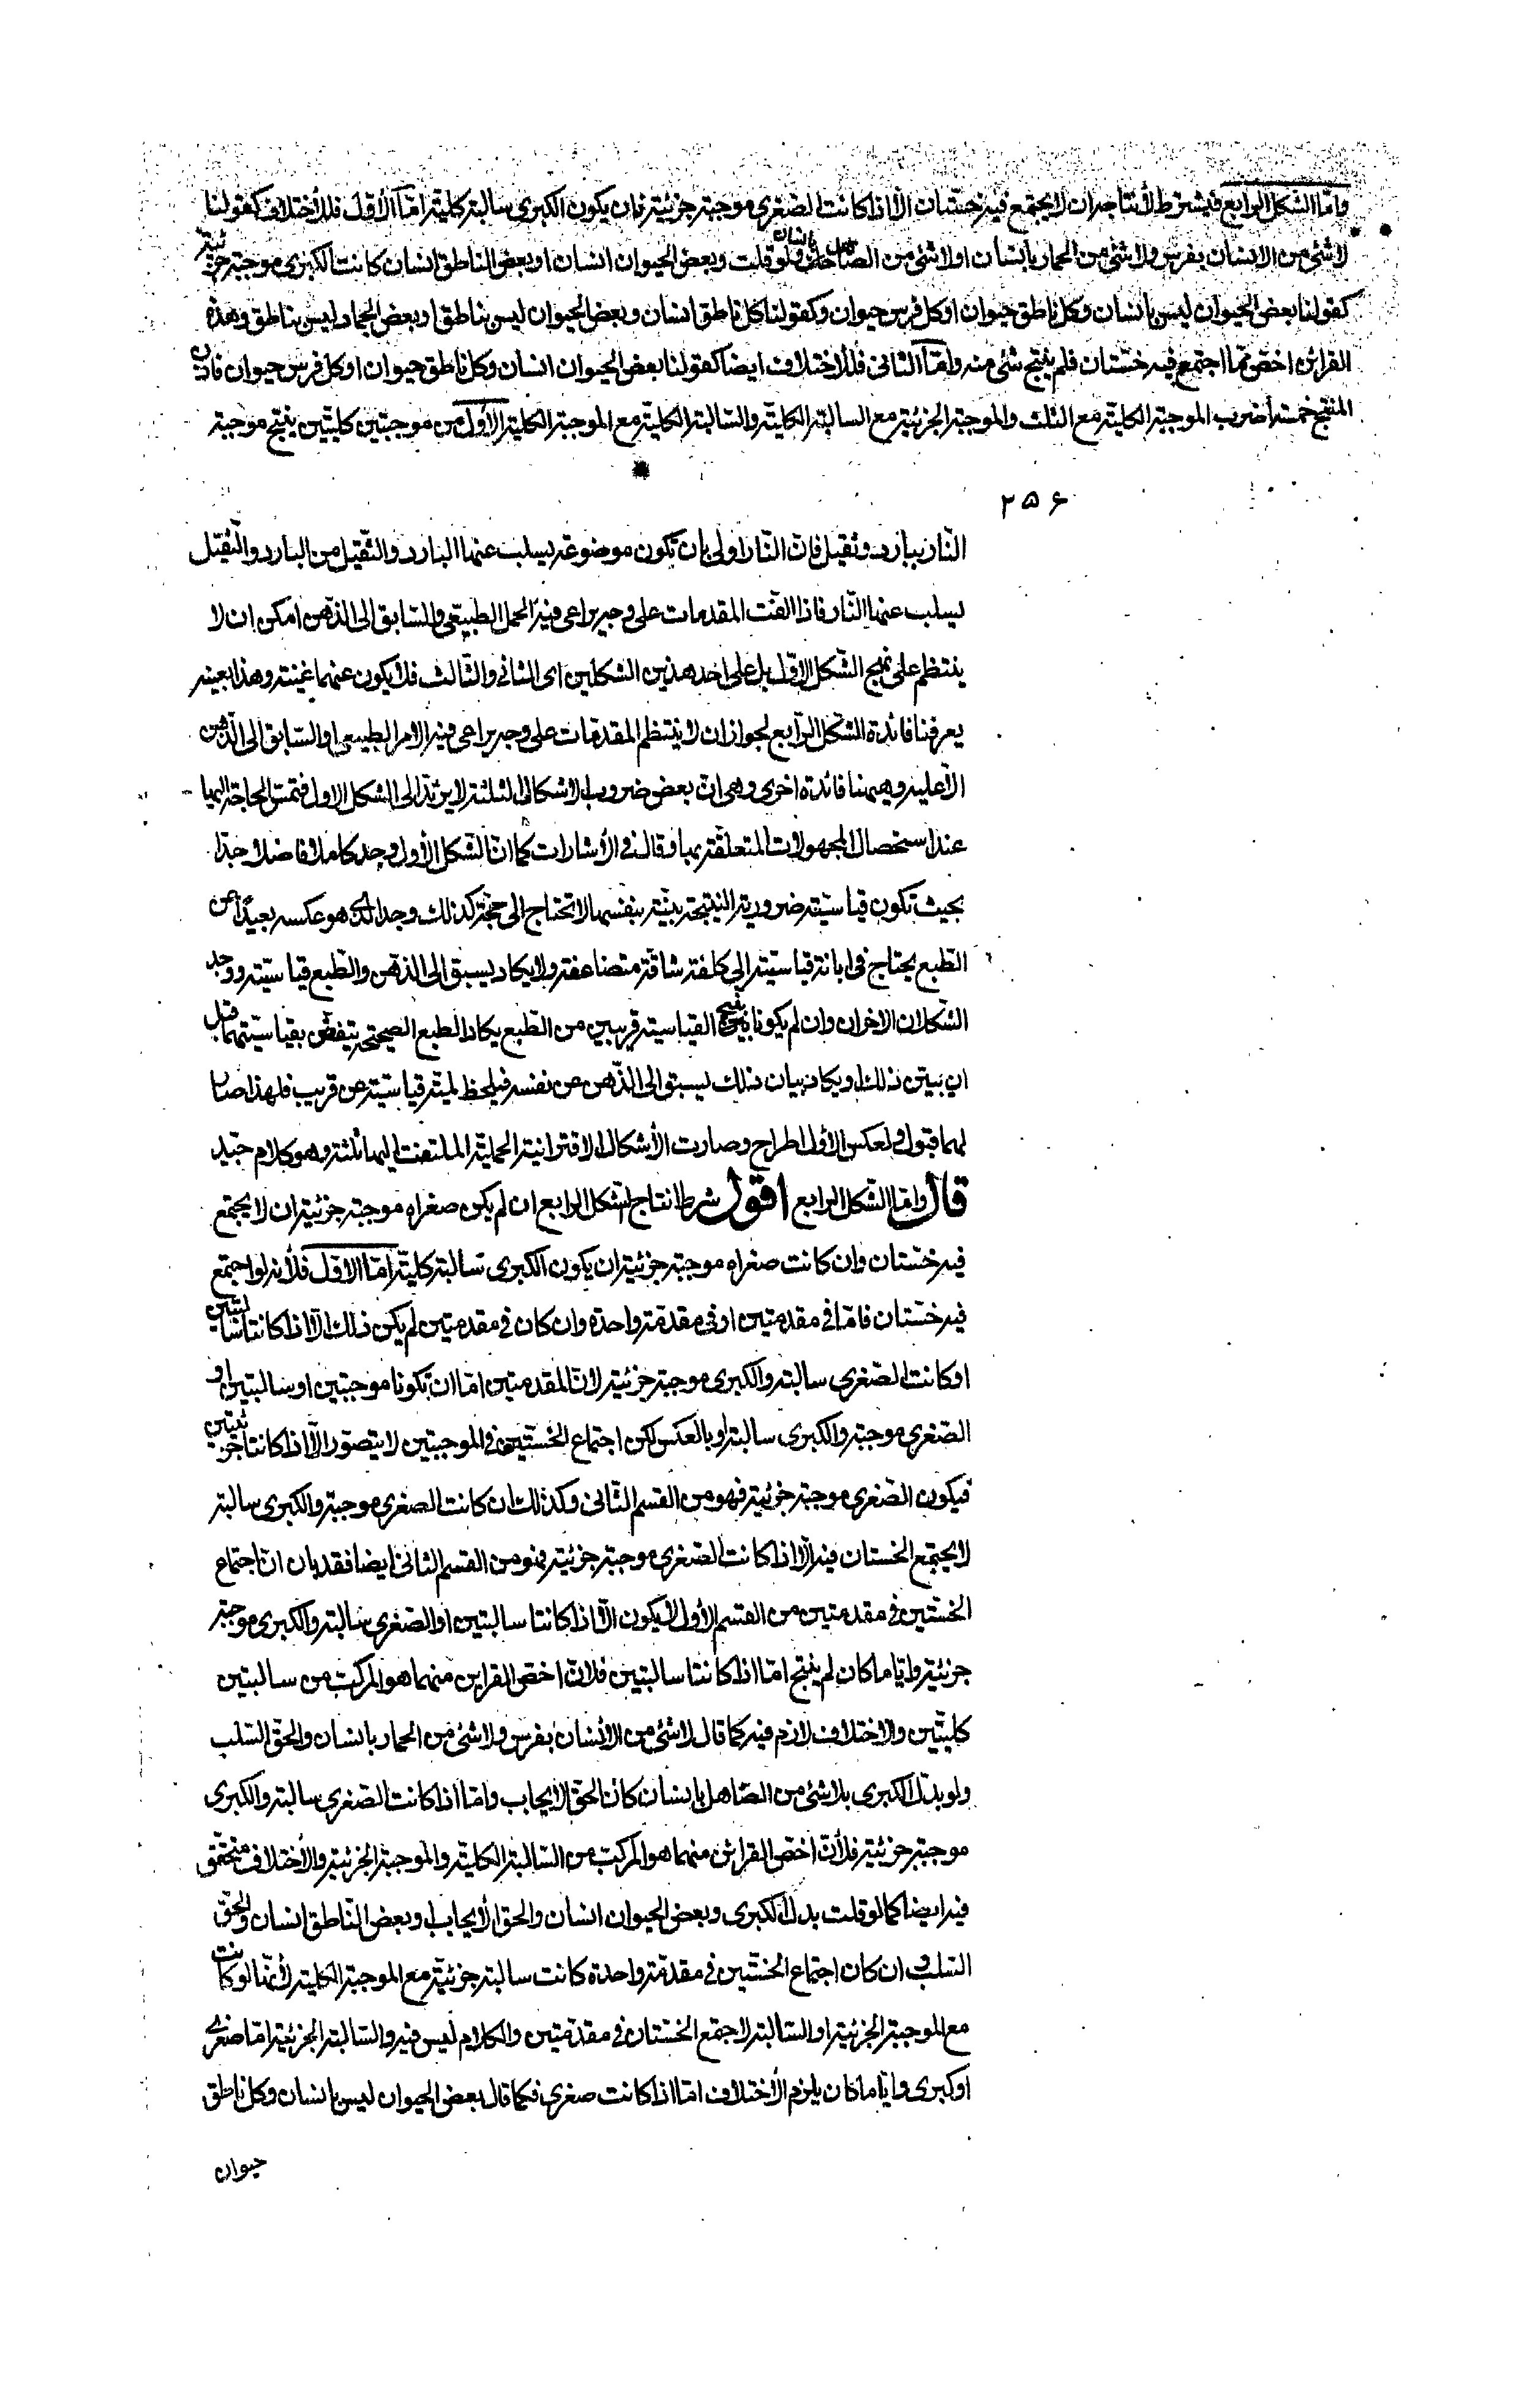 وامّا الشكل الرابع فيشترط لأنتاجه ان لا يجتمع فيه خسّتان الّا اذا كانت الصّغرى موجبة جزئية فان يكون الكبرى سالبة كلية امّا الأوّل فللأختلاف كقولنا
لا شئ من الانسان بفرس ولا شئ من الحمار بانسان او لا شئ من الصاهل بانسان ولو قلت وبعض الحيوان انسان او بعض الناطق انسان كانت الكبرى موجبة جزئية
كقولنا بعض الحيوان ليس بانسان وكل ناطق حيوان او كل فرس حيوان وكقولنا كل ناطق انسان وبعض الحيوان ليس بناطق او بعض الحمار ليس بناطق وهذه
القرائن اخصّ ممّا اجتمع فيه خسّتان فلم ينتج شئ منه وامّا الثانى فللأختلاف ايضا كقولنا بعض الحيوان انسان وكل ناطق حيوان او كل فرس حيوان فاذن
المنتج خمسة اضرب الموجبة الكليّة مع الثلث والموجبة الجزئية مع السالبة الكليّة والسّالبة الكليّة مع الموجبة الكلية الأول من موجبتين كليّتين ينتج موجبة
۲۵۶
النّار ببارد وثقيل فانّ النّار اولى بان تكون موضوعة يسلب عنها البارد والثّقيل من البارد والثّقيل
يسلب عنها النّار فاذا الّفت المقدمات على وجه يراعى فيه الحمل الطبيعّى والسّابق الى الذّهن امكن ان لا
ينتظم على نهج الشّكل الاوّل بل على احد هذين الشكلين اى الثانى والثّالث فلا يكون عنهما غنية وهذا بعينه
يعرفنا فائدة الشّكل الرّابع لجواز ان لا ينتظم المقدّمات على وجه يراعى فيه الامر الطبيعى او السّابق الى الذّهن
الّا عليه وهيهنا فائدة اخرى وهى انّ بعض ضروب الاشكال الثلثة لا يرتدّ الى الشكل الاول فتمسّ الحاجة اليها
عند استحصال المجهولات المتعلّقة بها وقال فى الأشارات كما انّ الشّكل الأول وجد كاملا فاضلا جدّا
بحيث تكون قياسيّته ضرورية النتيجة بيّنة بنفسها لا تحتاج الى حجّة كذلك وجد الّذى هو عكسه بعيدًا عن
الطّبع يحتاج فى ابانة قياسيّته الى كلفة شاقّة متضاعفة ولا يكاد يسبق الى الذّهن والطّبع قياسيّته ووجد
الشّكلان الاخران وان لم يكونا بيّنى القياسية قريبين من الطّبع يكاد الطبع الصحيح يتفطّن بقياسيّتهما قبل
ان يبيّن ذلك او يكاد بيان ذلك يسبق الى الذّهن من نفسه فيلحظ لميّة قياسيّته عن قريب فلهذا صار
لهما قبول ولعكس الأول اطراح وصارت الأشكال الاقترانية الحمليّة الملتفت اليها ثلثة وهو كلام جيّد
قال وامّا الشّكل الرابع اقول شرط انتاج الشّكل الرابع ان لم يكن صغراه موجبة جزئية ان لا يجتمع
فيه خسّتان وان كانت صغراه موجبة جزئية ان يكون الكبرى سالبة كليّة امّا الاوّل فلأنه لو اجتمع
فيه خسّتان فامّا فى مقدمتين او فى مقدّمة واحدة وان كان فى مقدمتين لم يكن ذلك الّا اذا كانتا سالبتين
او كانت الصّغرى سالبة والكبرى موجبة جزئية لانّ المقدمتين امّا ان تكونا موجبتين او سالبتين او
الصّغرى موجبة والكبرى سالبة او بالعكس لكن اجتماع الخسّتين فى الموجبتين لا يتصوّر الّا اذا كانتا جزئيتين
فيكون الصّغرى موجبة جزئية فهو من القسم الثّانى وكذلك ان كانت الصغرى موجبة والكبرى سالبة
لا يجتمع الخستان فيه الّا اذا كانت الصّغرى موجبة جزئية فهو من القسم الثانى ايضا فقد بان انّ اجتماع
الخسّتين فى مقدمتين من القسم الأول لا يكون الّا اذا كانتا سالبتين او الصّغرى سالبة والكبرى موجبة
جزئية وايّا ما كان لم ينتج امّا اذا كانتا سالبتين فلانّ اخصّ القراين منهما هو المركّب من سالبتين
كليّتين والاختلاف لازم فيه كما قال لا شئ من الأنسان بفرس ولا شئ من الحمار بانسان والحقّ السّلب
ولو بدّل الكبرى بلا شئ من الصّاهل بانسان كان الحقّ الايجاب وامّا اذا كانت الصّغرى سالبة والكبرى
موجبة جزئية فلأنّ اخصّ القرائن منهما هو المركّب من السّالبة الكليّة والموجبة الجزئية والأختلاف متحقّق
فيه ايضا كما لو قلت بدل الكبرى وبعض الحيوان انسان والحق الأيجاب او بعض النّاطق انسان والحقّ
السّلب وان كان اجتماع الخسّتين فى مقدّمة واحدة كانت سالبة جزئيّة مع الموجبة الكلية لأنّها لو كانت
مع الموجبة الجزئية او السّالبة لاجتمع الخسّتان فى مقدّمتين والكلام ليس فيه والسّالبة الجزئية امّا صغرى
او كبرى وايّا ما كان يلزم الأختلاف امّا اذا كانت صغرى فكما قال بعض الحيوان ليس بانسان وكل ناطق
حيوان